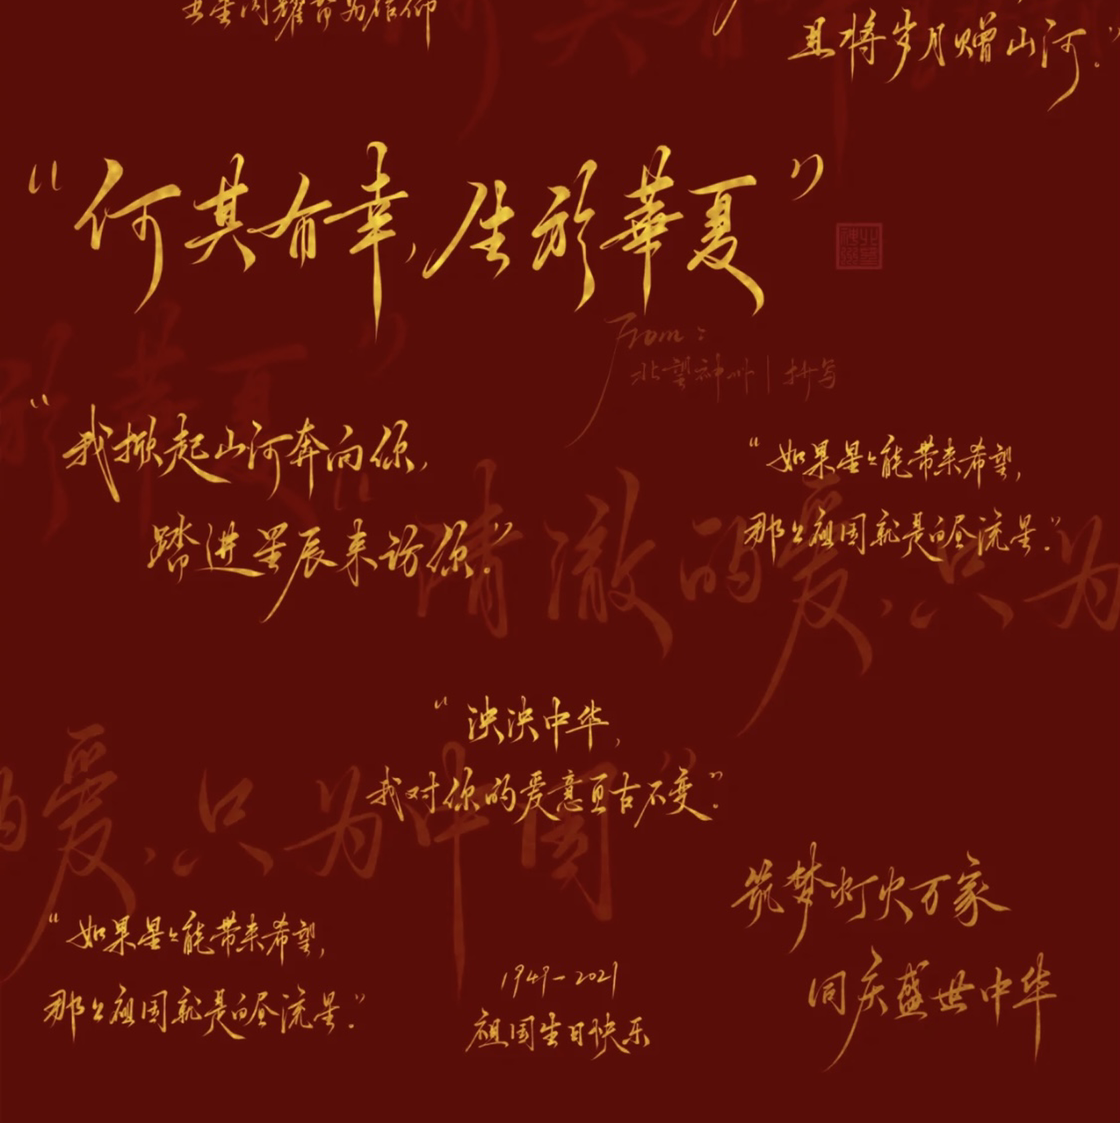 五星闪耀皆为信仰
且将岁月赠山河。”
“何其有幸,生於華夏”
From:
北望神州|抖写
“我掀起山河奔向你,
踏进星辰来访你。”
“如果星星能带来希望,
那么祖国就是白昼流星。”
清澈的爱,只为
“泱泱中华,
我对你的爱意亘古不变”。
的爱,只为中国
筑梦灯火万家
同庆盛世中华
“如果星星能带来希望,
那么祖国就是白昼流星”。
1949-2021
祖国生日快乐